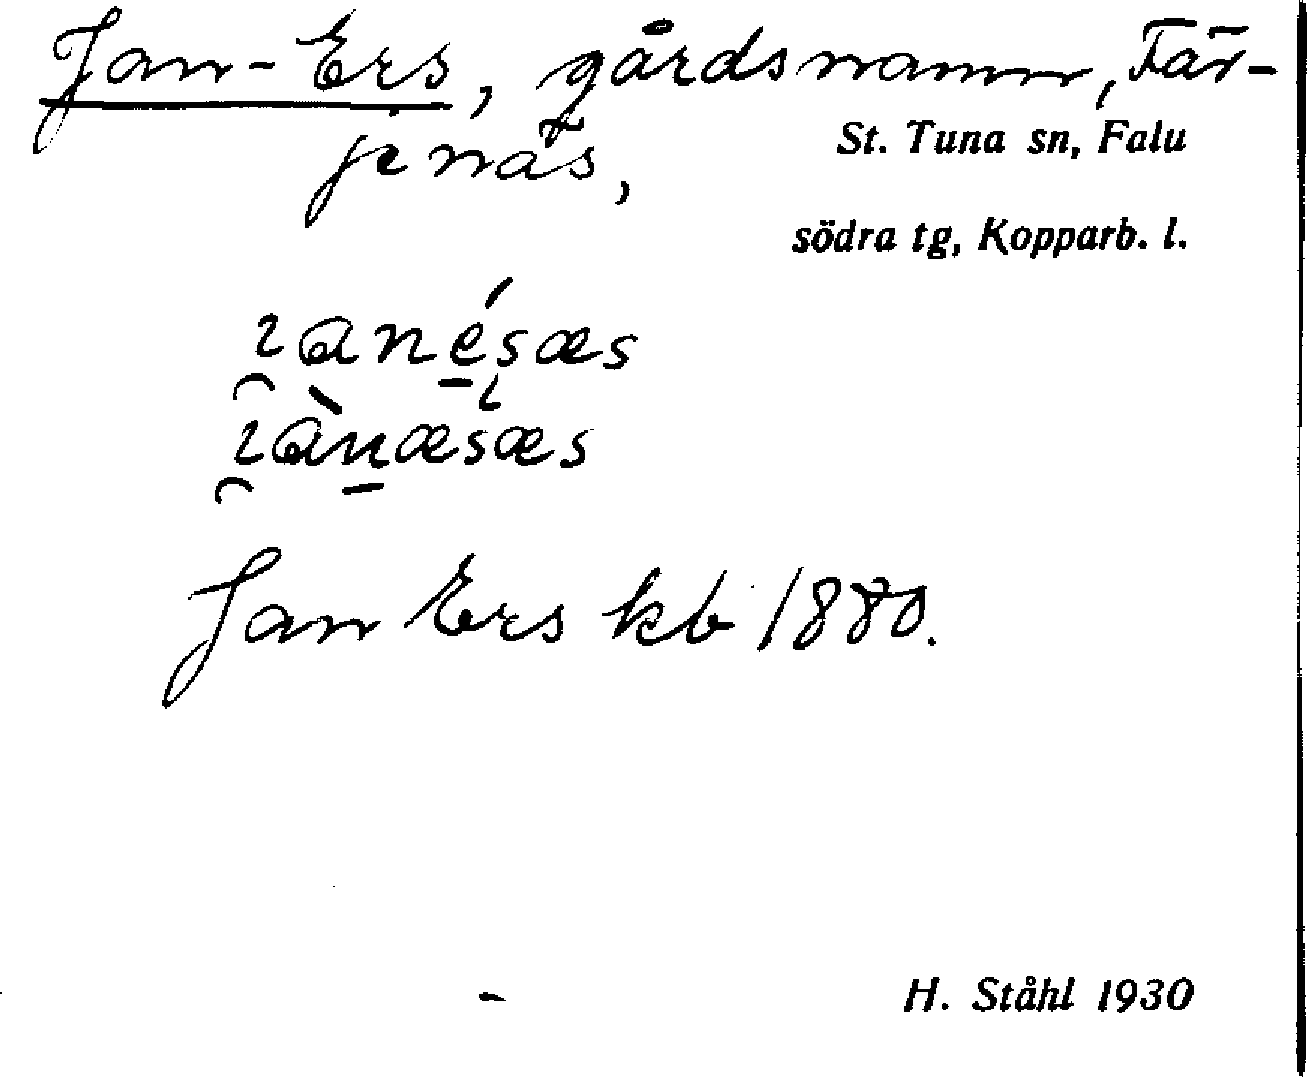 Jan-Ers, gårdsnamn, Fär-
jenäs,
St. Tuna sn, Falu
södra tg, Kopparb. l.
Jan Ers kb 1880.
H. Ståhl 1930